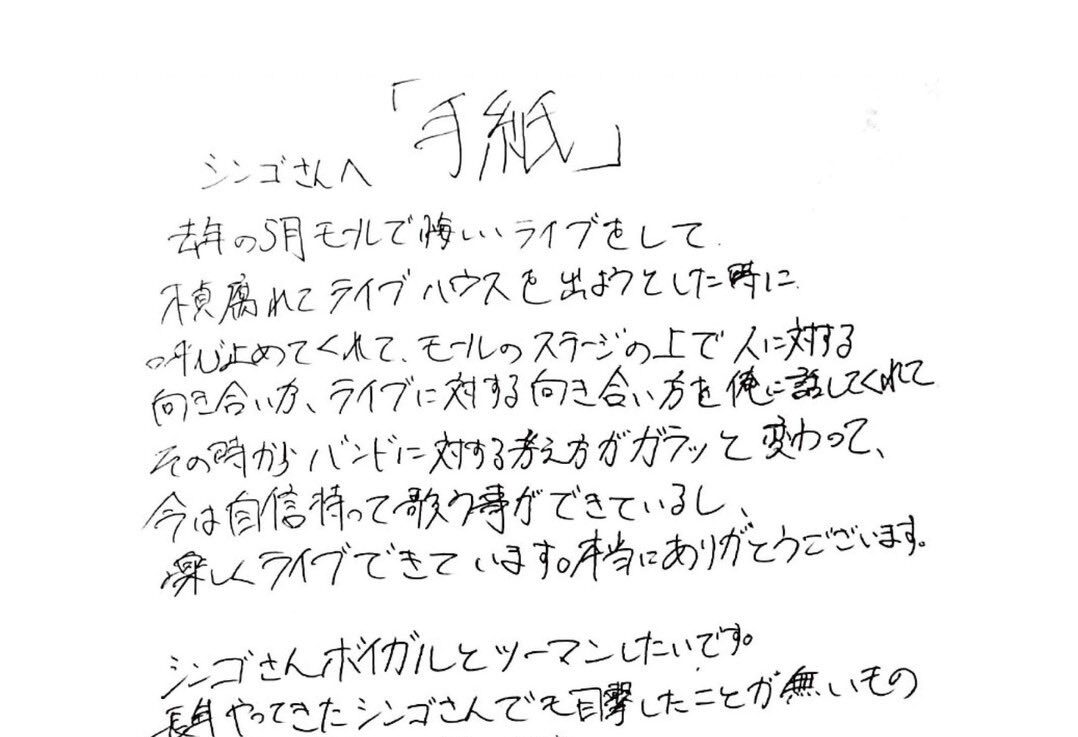 「手紙」
シンゴさんへ
去年の5月モールで悔しいライブをして
不貞腐れてライブハウスを出ようとした時に
呼び止めてくれて、モールのステージの上で人に対する
向き合い方、ライブに対する向き合い方を俺に話してくれて
その時からバンドに対する考え方がガラッと変わって、
今は自信持って歌う事ができているし、
楽しくライブできています。本当にありがとうございます。
シンゴさんボイガルとツーマンしたいです。
長年やってきたシンゴさんでも目撃したことが無いもの